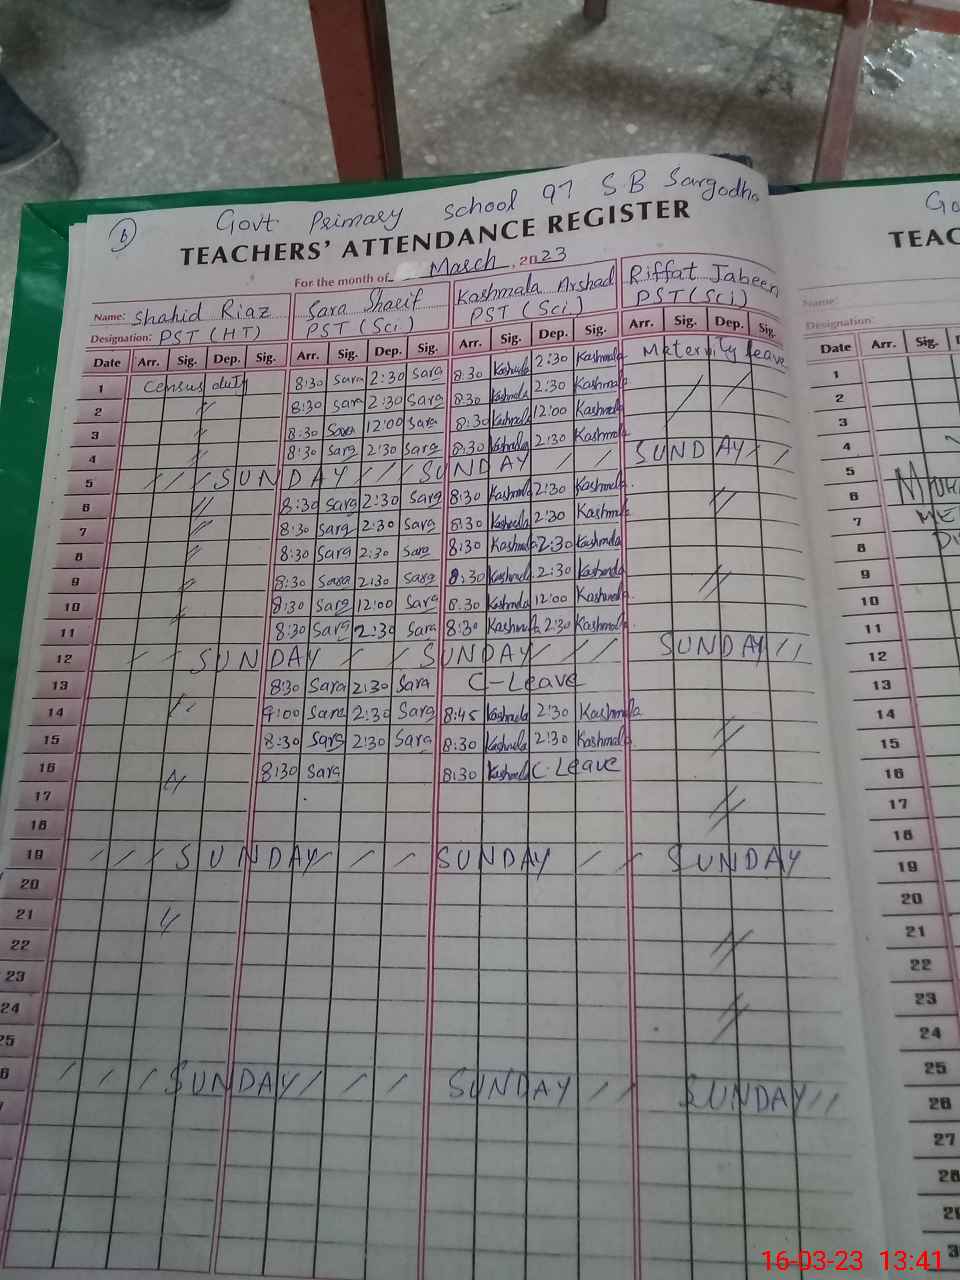 6
Govt Primary School 97 SB Sargodha
TEACHERS' ATTENDANCE REGISTER
For the month of March, 2023
Name: Shahid Riaz Sara Sharif Kashmala Arshad Riffat Jabeen
Designation: PST (HT) PST (Sci) PST (Sci) PST (Sci)
Date Arr. Sig. Dep. Sig. Arr. Sig. Dep. Sig. Arr. Sig. Dep. Sig. Arr. Sig. Dep. Sig.
1 Census duty 8:30 Sara 2:30 Sara 8:30 Kashmala 2:30 Kashmala Maternity leave
2 〃 8:30 Sara 2:30 Sara 8:30 Kashmala 2:30 Kashmala
3 〃 8:30 Sara 12:00 Sara 8:30 Kashmala 12:00 Kashmala
4 〃 8:30 Sara 2:30 Sara 8:30 Kashmala 2:30 Kashmala
5 / / / SUNDAY / / / SUNDAY / / SUNDAY / /
6 〃 8:30 Sara 2:30 Sara 8:30 Kashmala 2:30 Kashmala 〃
7 〃 8:30 Sara 2:30 Sara 8:30 Kashmala 2:30 Kashmala
8 〃 8:30 Sara 2:30 Sara 8:30 Kashmala 2:30 Kashmala
9 〃 8:30 Sara 2:30 Sara 8:30 Kashmala 2:30 Kashmala 〃
10 〃 8:30 Sara 12:00 Sara 8:30 Kashmala 12:00 Kashmala
11 8:30 Sara 2:30 Sara 8:30 Kashmala 2:30 Kashmala
12 / / SUNDAY / / SUNDAY / / / SUNDAY / /
13 8:30 Sara 2:30 Sara C-Leave
14 〃 9:00 Sara 2:30 Sara 8:45 Kashmala 2:30 Kashmala
15 8:30 Sara 2:30 Sara 8:30 Kashmala 2:30 Kashmala 〃
16 〃 8:30 Sara 8:30 Kashmala C-Leave
17 〃
18
19 / / / SUNDAY / / / SUNDAY / / SUNDAY
20
21 〃
22 〃
23
24 〃
25
6 / / / SUNDAY / / / SUNDAY / / SUNDAY / /
Go
TEAC
Name:
Designation:
Date Arr. Sig.
1
2
3
4
5
6
7
8
9
10
11
12
13
14
15
16
17
18
19
20
21
22
23
24
25
26
27
28
16-03-23 13:41